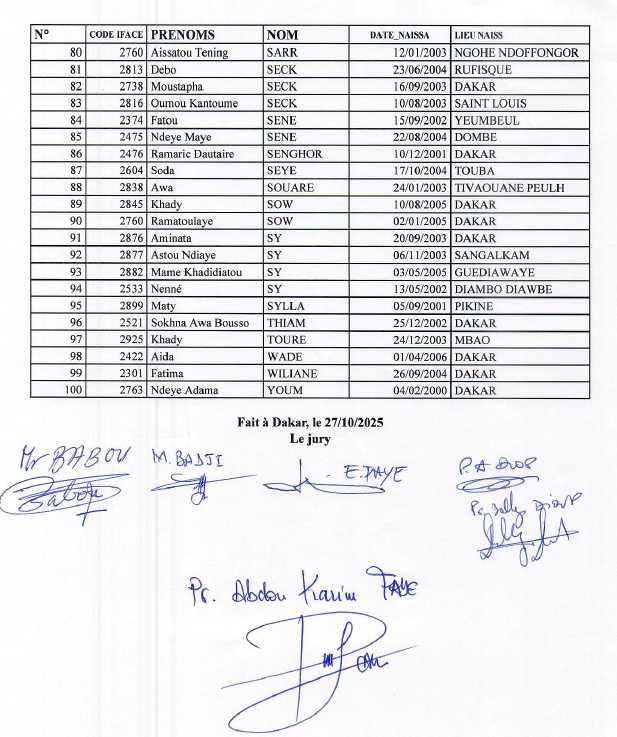 N° CODE IFACE PRENOMS NOM DATE_NAISSA LIEU NAISS
80 2760 Aissatou Tening SARR 12/01/2003 NGOHE NDOFFONGOR
81 2813 Debo SECK 23/06/2004 RUFISQUE
82 2738 Moustapha SECK 16/09/2003 DAKAR
83 2816 Oumou Kantoume SECK 10/08/2003 SAINT LOUIS
84 2374 Fatou SENE 15/09/2002 YEUMBEUL
85 2475 Ndeye Maye SENE 22/08/2004 DOMBE
86 2476 Ramaric Dautaire SENGHOR 10/12/2001 DAKAR
87 2604 Soda SEYE 17/10/2004 TOUBA
88 2838 Awa SOUARE 24/01/2003 TIVAOUANE PEULH
89 2845 Khady SOW 10/08/2005 DAKAR
90 2760 Ramatoulaye SOW 02/01/2005 DAKAR
91 2876 Aminata SY 20/09/2003 DAKAR
92 2877 Astou Ndiaye SY 06/11/2003 SANGALKAM
93 2882 Mame Khadidiatou SY 03/05/2005 GUEDIAWAYE
94 2533 Nenné SY 13/05/2002 DIAMBO DIAWBE
95 2899 Maty SYLLA 05/09/2001 PIKINE
96 2521 Sokhna Awa Bousso THIAM 25/12/2002 DAKAR
97 2925 Khady TOURE 24/12/2003 MBAO
98 2422 Aida WADE 01/04/2006 DAKAR
99 2301 Fatima WILIANE 26/09/2004 DAKAR
100 2763 Ndeye Adama YOUM 04/02/2000 DAKAR
Fait à Dakar, le 27/10/2025
Le jury
Mr BABOU M. BADJI E. FAYE P.A DIOP
Pr. DIOUF
Pr. Abdou Karim FAYE